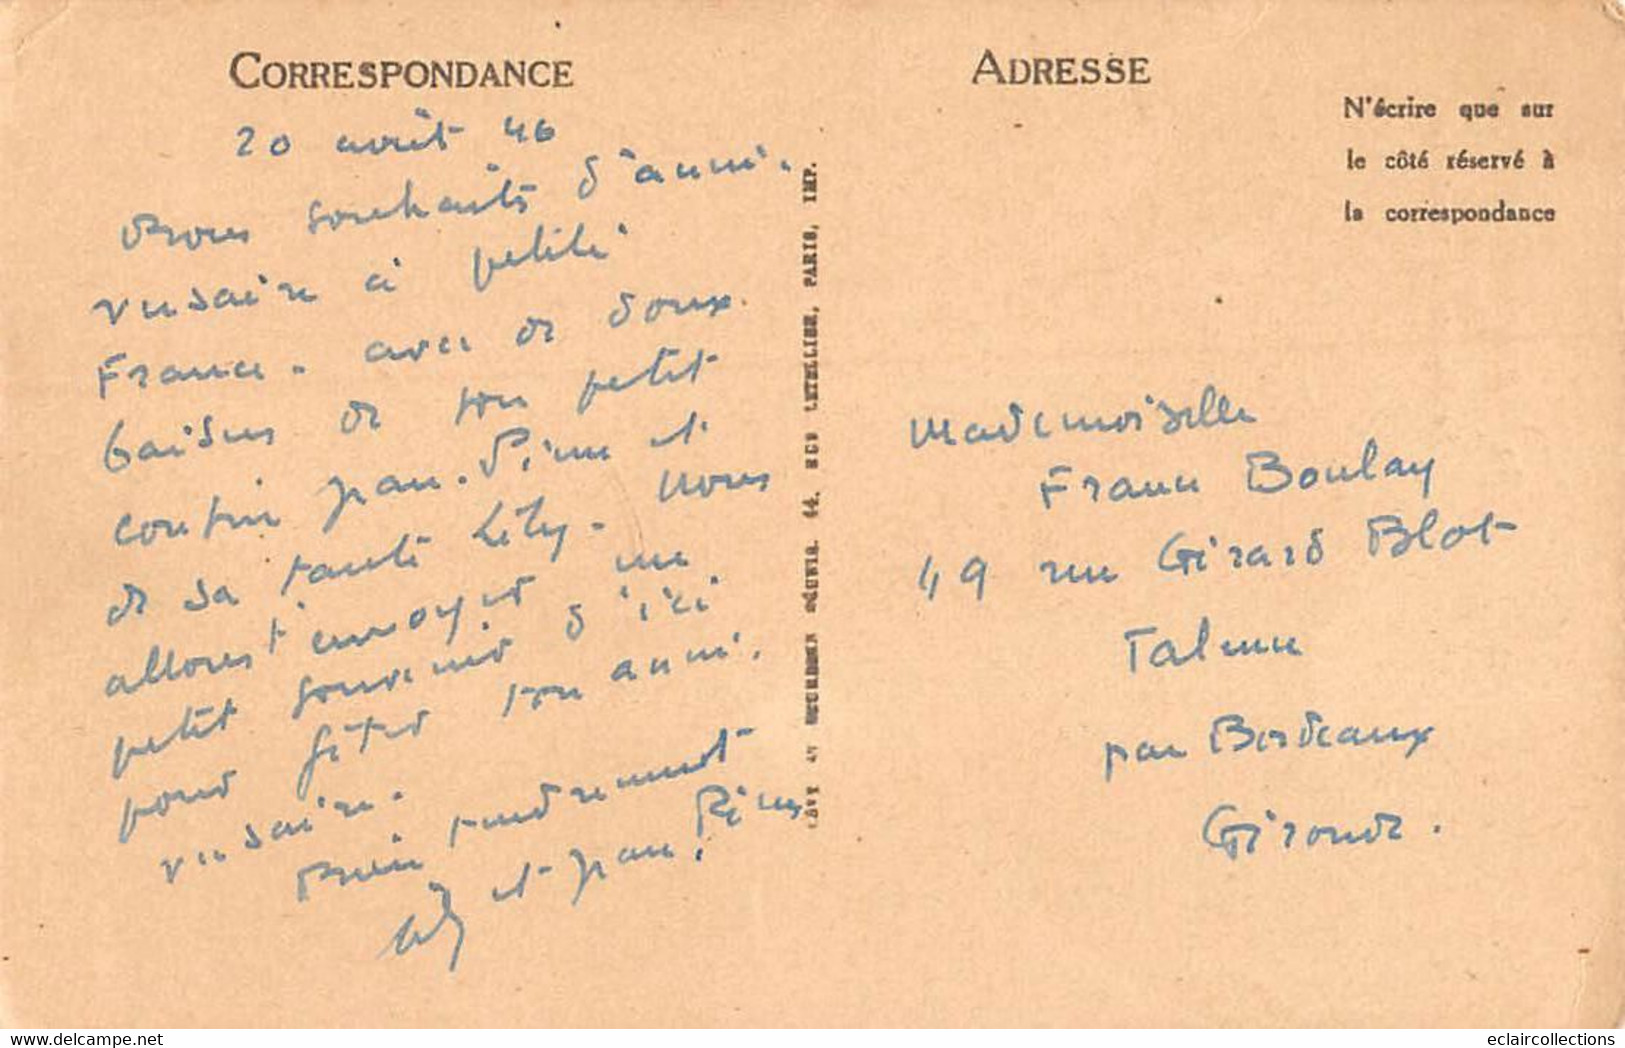 CORRESPONDANCE
20 août 46
Bons souhaits d'anni-
versaire à petite
France. avec de doux
baisers de son petit
cousin Jean-Pierre et
de sa tante Lily. Nous
allons t'envoyer un
petit souvenir d'ici
pour fêter ton anni.
versaire.
Bien tendrement
Lily et Jean. Pierre
LÉVY ET NEURDEIN RÉUNIS, 44, RUE LETELLIER, PARIS, IMP.
ADRESSE
N'écrire que sur
le côté réservé à
la correspondance
Mademoiselle
France Boulay
49 rue Girard Blot
Talence
par Bordeaux
Gironde.
eclaircollections
www.delcampe.net